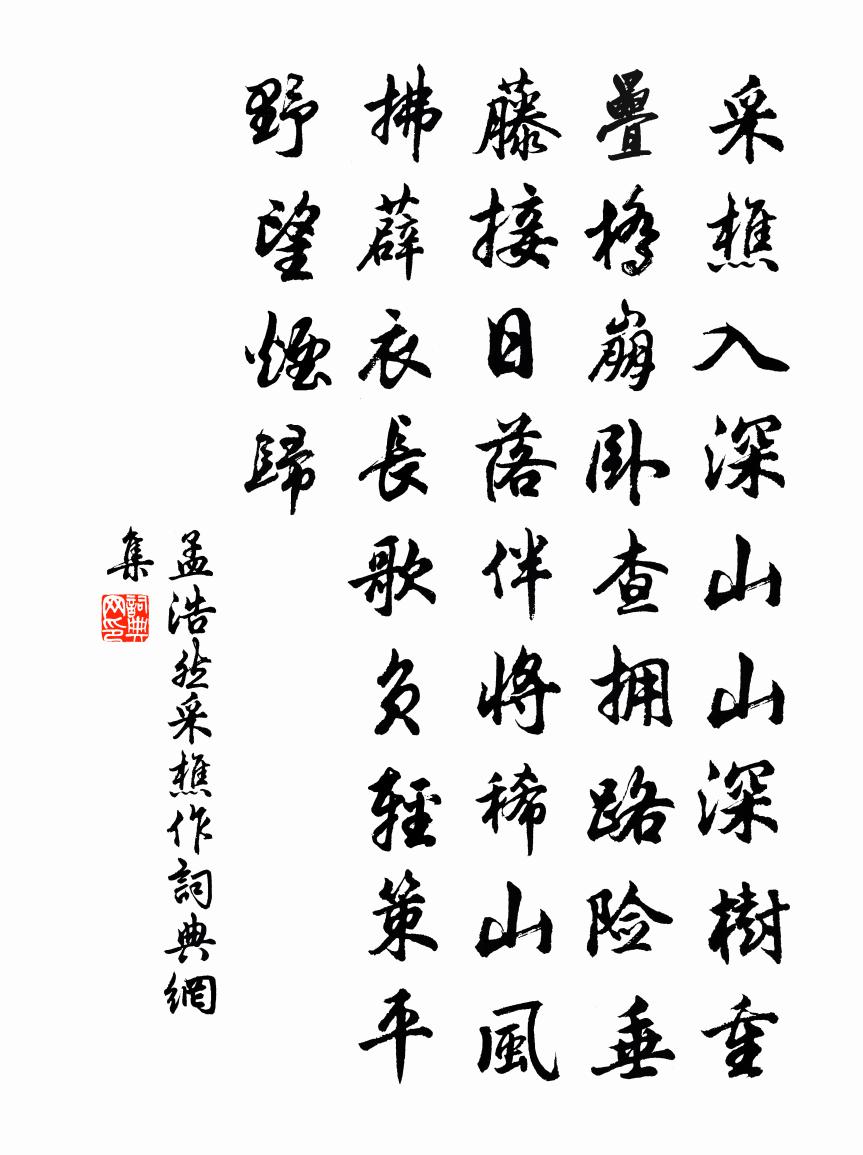 采樵入深山山深樹重
疊橋崩卧查拥路险垂
藤接日落伴将稀山風
拂薜衣長歌负輕策平
野望煙歸
孟浩然采樵作詞典網
集
詞典
网印